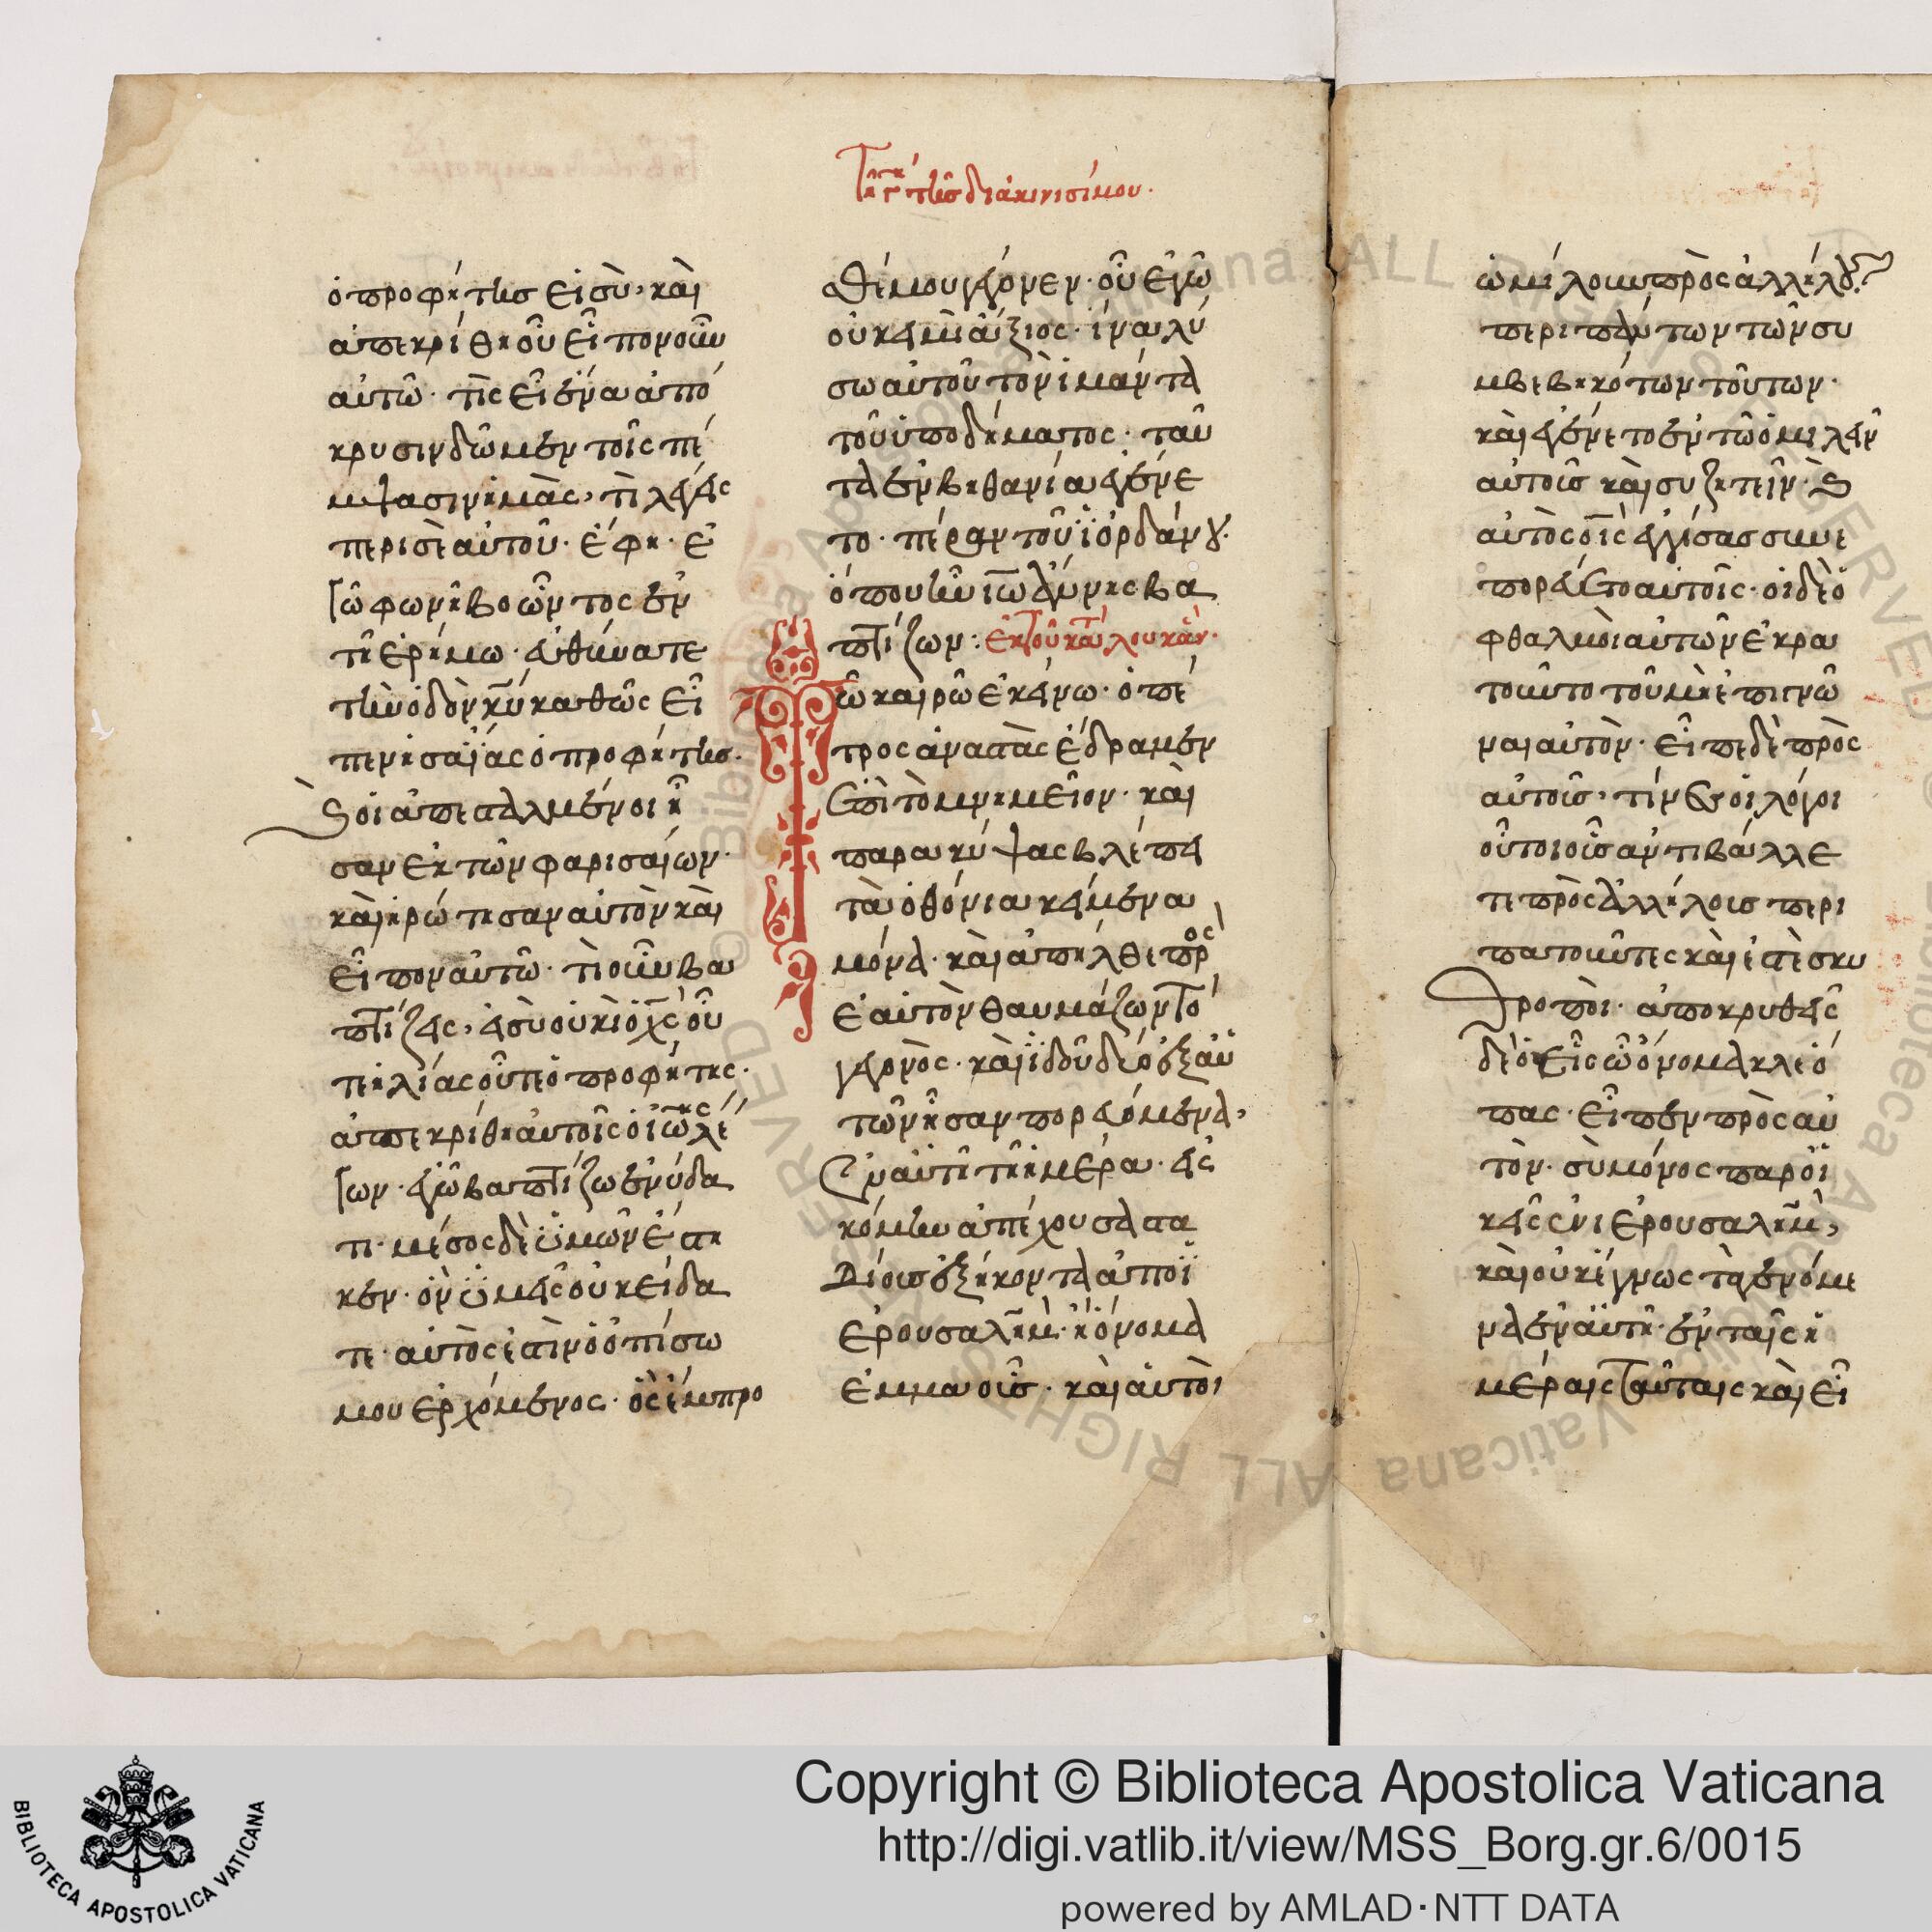 Τῆ γ τῆς διακινισίμου.
ὁ προφήτης εἶ σὺ, καὶ
ἀπεκρίθη οὒ εἶπον οὖν
αὐτῶ· τὶς εἶ ἵνα ἀπό
κρυσιν δῶμεν τοῖς πέ
μψασιν ἡμὰς, τὶ λέγεις
περι σὲ αυτοῦ· ἔφη· ἐ
γῶ φωνῆ βοῶντος ἐν
τῆ ἐρήμω· εὐθύνατε
τὴν ὁδὸν κ̅υ̅ καθῶς εἶ
πεν ἡσαΐας ὁ προφήτης·
Καὶ οἱ ἀπεσταλμένοι ἦ
σαν ἐκ τῶν φαρισαίων·
καὶ ἠρώτησαν αὐτὸν καὶ
εἶπον αὐτῶ· τὶ οὖν βα
πτίζεις, εἰ σὺ οὐκ ἐι ὁ χ̅ς̅ οὒ
τε ἠλίας οὔτε ὁ προφήτης·
ἀπεκρίθη αυτοῖς ὁ ἰω̅ης λέ
γων· ἐγῶ βαπτίζω ἐν ύδα
τι· μέσος δὲ ὑμῶν ἕστη
κεν· ὃν ὑμεῖς οὐκ εἴδα
τε· αὐτὸς ἐστὶν ὁ ὀπίσω
μου ἐρχόμενος· ὃς ἔμπρο
σθέν μου γέγονεν· οὗ ἐγῶ
οὐκ εἰμὶ ἄξιος· ίνα λύ
σω αὐτοῦ τὸν ἱμάντα
τοῦ ὑποδήματος· ταῦ
τα ἐν βηθανία ἐγένε
το· πέραν τοῦ ἰορδάνου·
ὅπου ἦν ἰω̅άννης βα
πτίζων: ἐκ τοῦ κατὰ λουκάν·
Τῶ καιρῶ ἐκείνω· ὁ πέ
τρος ἀναστὰς ἔδραμεν
ἐπὶ τὸ μνημεῖον· καὶ
παρακύψας βλέπει
τὰ ὀθόνια κείμενα
μόνα· καὶ ἀπῆλθε πρὸς
ἑαυτὸν θαυμάζων τὸ
γεγονὸς· καὶ ἰδοῦ δύο ἐξ αὐ
τῶν ἦσαν πορευόμενα,
ἐν αὐτῆ τῆ ἡμέρα· εἰς
κόμην ἀπέχουσα στα
δίους ἑξήκοντα ἀπο ἰ
ερουσαλῆμ· ἧ ὄνομα
ἐμμαοῦς· καὶ αὐτὸι
ὡμίλουν πρὸς ἀλλήλους
περι πάντων τῶν συ
μβεβηκότων τούτων·
καὶ ἐγένετο ἐν τῶ ὁμιλεῖν
αὐτοὺς καὶ συζητεῖν· καὶ
αὐτὸς ὁ ἰ̅ς̅ ἐγγίσας συνε
πορεύετο αὐτοῖς· οἱ δὲ ὀ
φθαλμὸι αὐτῶν ἐκρα
τοῦντο τοῦ μὴ ἐπιγνῶ
ναι αὐτὸν· εἶπε δὲ πρὸς
αὐτοὺς, τίνες οἱ λόγοι
οὗτοι οὓς ἀντιβάλλε
τε πρὸς ἀλλήλους περι
πατοῦντες καὶ ἐστὲ σκυ
θροποὶ· ἀποκρυθεὶς
δὲ ὁ εἷς ὧ ὄνομα κλεό
πας· εἶπεν πρὸς αὐ
τὸν· σὺ μόνος παροι
κεῖς ἐν ἱερουσαλῆμ,
καὶ οὐκ ἔγνως τὰ γενόμε
να ἐν αὐτῆ· ἐν ταῖς ἡ
μέραις ταύταις καὶ εἶ
Copyright © Biblioteca Apostolica Vaticana
http://digi.vatlib.it/view/MSS_Borg.gr.6/0015
powered by AMLAD·NTT DATA
BIBLIOTECA APOSTOLICA VATICANA